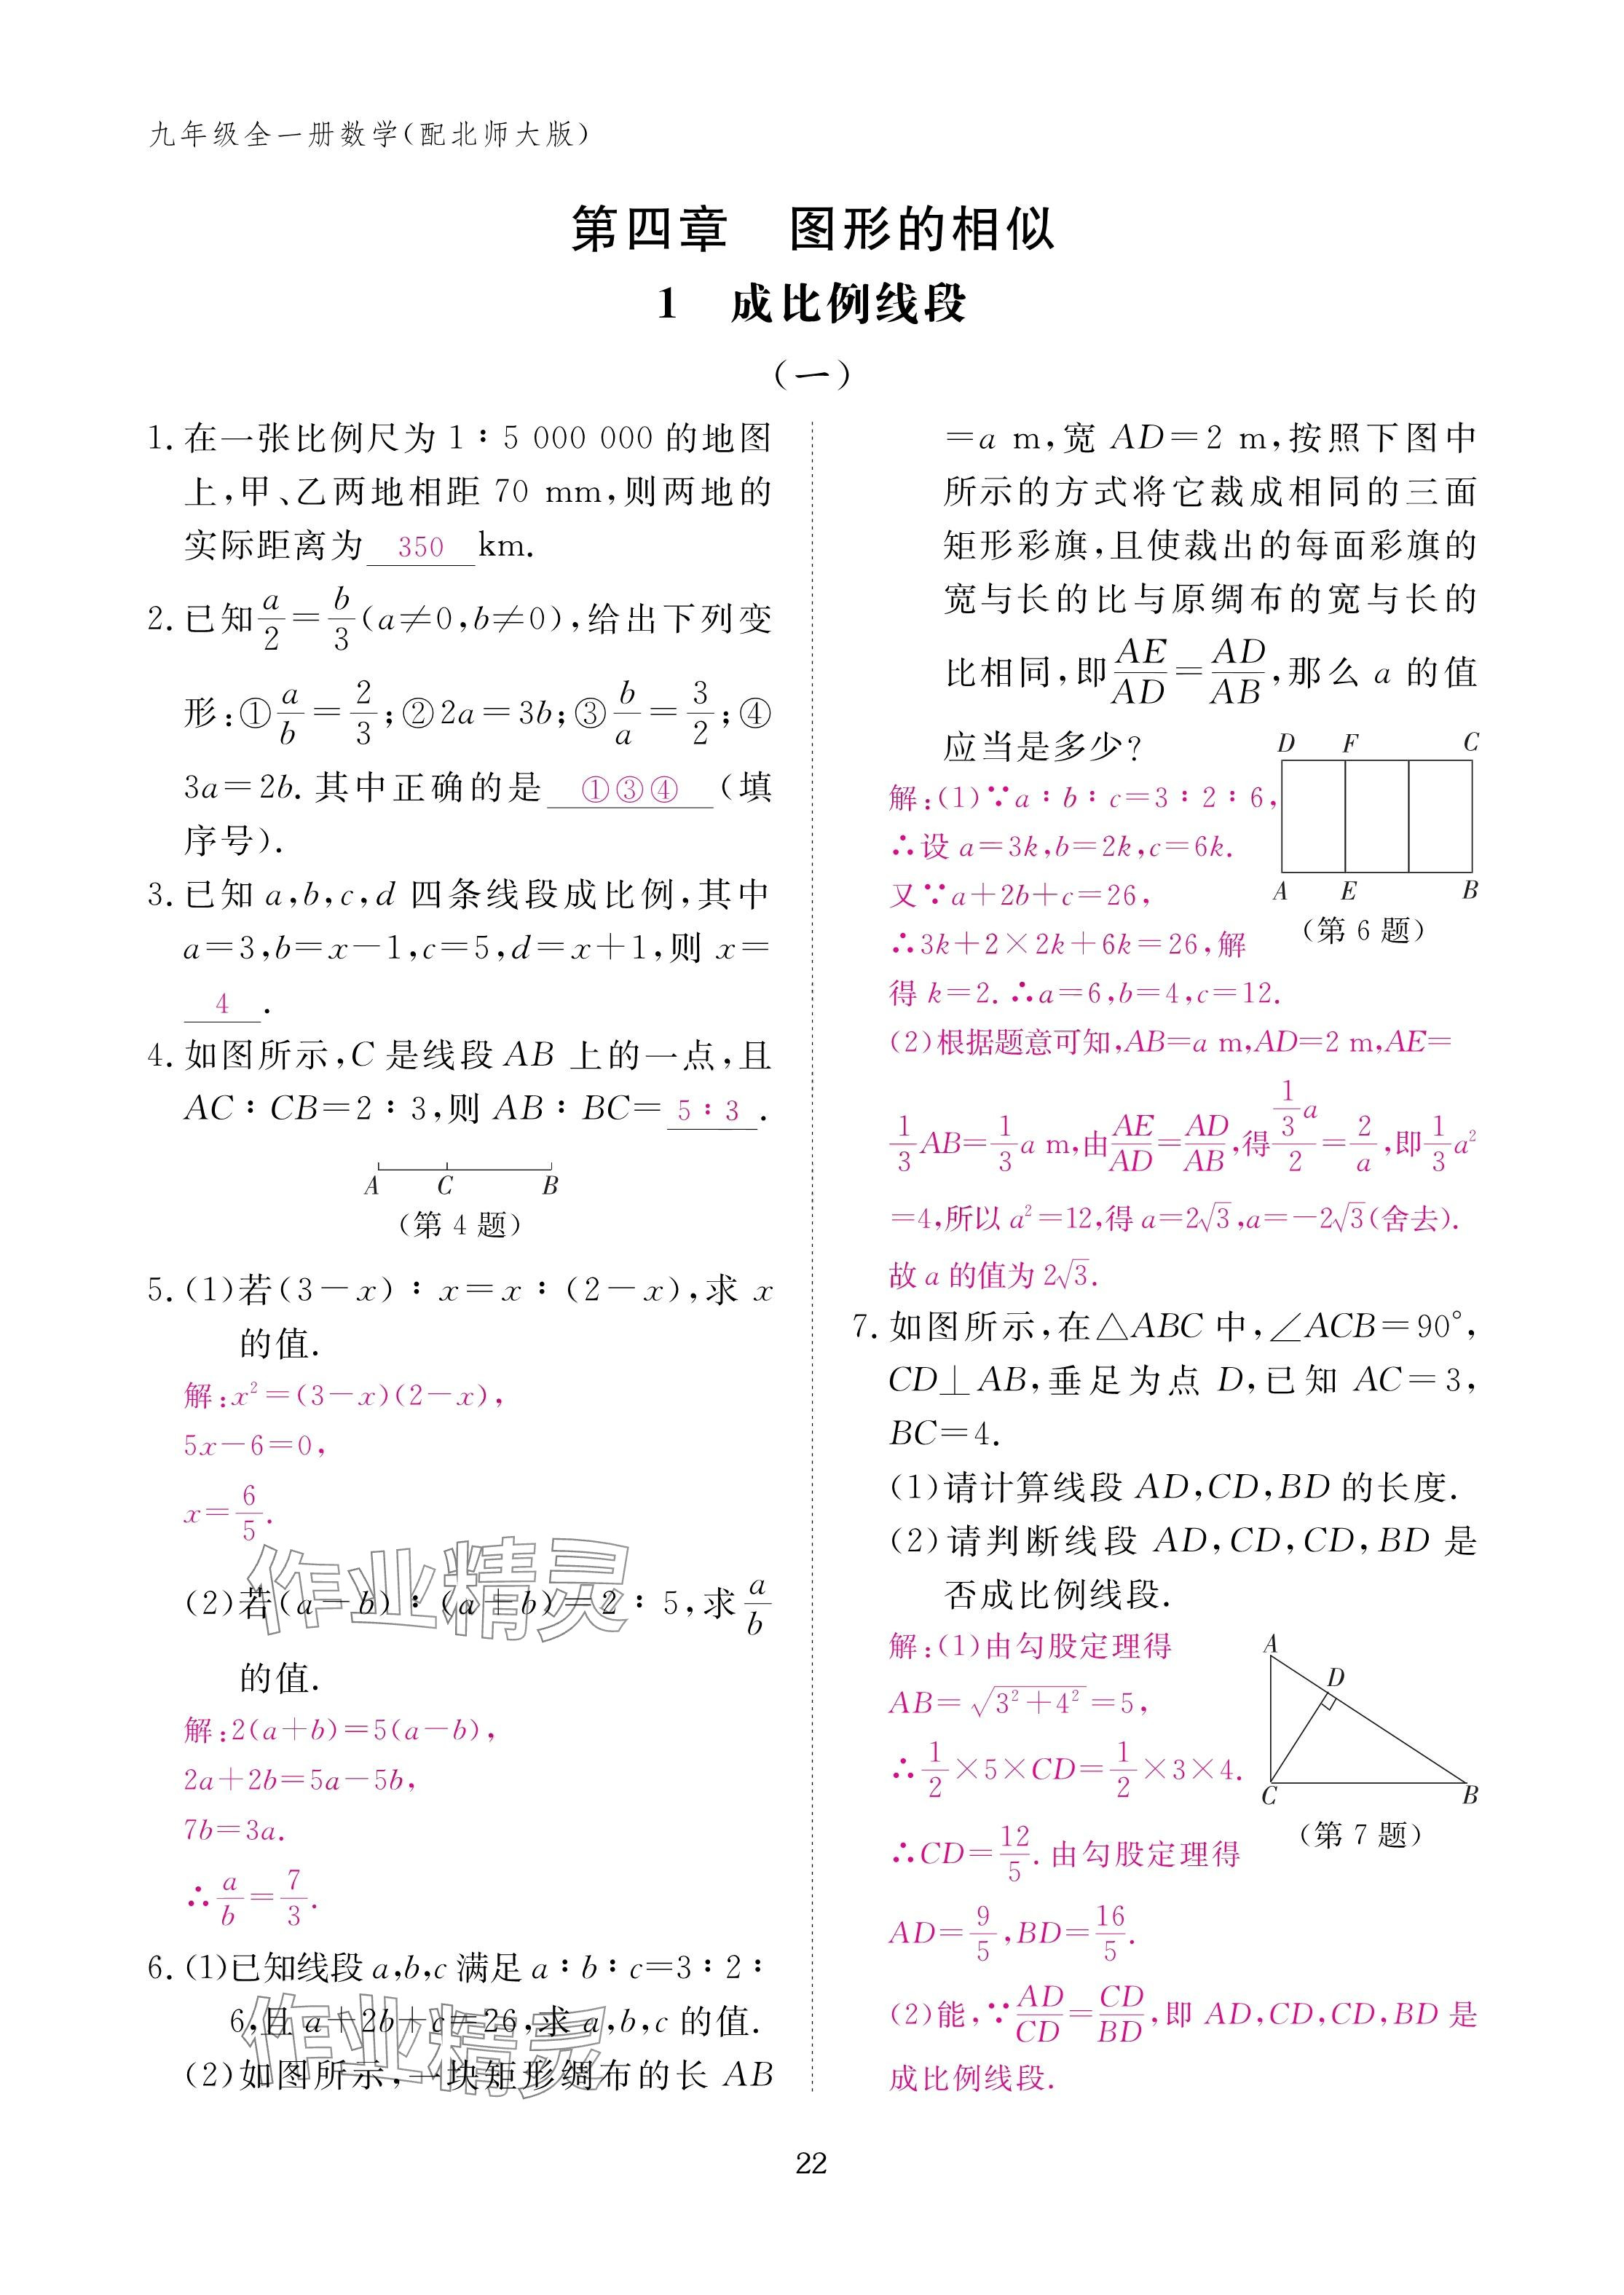 九年级全一册数学(配北师大版)
第四章 图形的相似
1 成比例线段
(一)
1. 在一张比例尺为 1∶5 000 000 的地图
上,甲、乙两地相距 70 mm,则两地的
实际距离为 350 km.
2. 已知a/2=b/3(a≠0,b≠0),给出下列变
形:①a/b=2/3;②2a=3b;③b/a=3/2;④
3a=2b. 其中正确的是 ①③④ (填
序号).
3. 已知 a,b,c,d 四条线段成比例,其中
a=3,b=x-1,c=5,d=x+1,则 x=
4 .
4. 如图所示,C 是线段 AB 上的一点,且
AC∶CB=2∶3,则 AB∶BC= 5∶3 .
A C B
(第 4 题)
5. (1)若(3-x)∶x=x∶(2-x),求 x
的值.
解:x²=(3-x)(2-x),
5x-6=0,
x=6/5.
(2)若(a-b)∶(a+b)=2∶5,求a/b
的值.
解:2(a+b)=5(a-b),
2a+2b=5a-5b,
7b=3a.
∴a/b=7/3.
6. (1)已知线段 a,b,c 满足 a∶b∶c=3∶2∶
6,且 a+2b+c=26,求 a,b,c 的值.
(2)如图所示,一块矩形绸布的长 AB
=a m,宽 AD=2 m,按照下图中
所示的方式将它裁成相同的三面
矩形彩旗,且使裁出的每面彩旗的
宽与长的比与原绸布的宽与长的
比相同,即AE/AD=AD/AB,那么 a 的值
应当是多少?
D F C
A E B
(第 6 题)
解:(1)∵a∶b∶c=3∶2∶6,
∴设 a=3k,b=2k,c=6k.
又∵a+2b+c=26,
∴3k+2×2k+6k=26,解
得 k=2. ∴a=6,b=4,c=12.
(2)根据题意可知,AB=a m,AD=2 m,AE=
1/3AB=1/3a m,由AE/AD=AD/AB,得(1/3a)/2=2/a,即1/3a²
=4,所以 a²=12,得 a=2√3,a=-2√3(舍去).
故 a 的值为 2√3.
7. 如图所示,在△ABC 中,∠ACB=90°,
CD⊥AB,垂足为点 D,已知 AC=3,
BC=4.
(1)请计算线段 AD,CD,BD 的长度.
(2)请判断线段 AD,CD,CD,BD 是
否成比例线段.
解:(1)由勾股定理得
AB=√(3²+4²)=5,
∴1/2×5×CD=1/2×3×4.
∴CD=12/5. 由勾股定理得
AD=9/5,BD=16/5.
A
D
C B
(第 7 题)
(2)能,∵AD/CD=CD/BD,即 AD,CD,CD,BD 是
成比例线段.
作业精灵
作业精灵
22